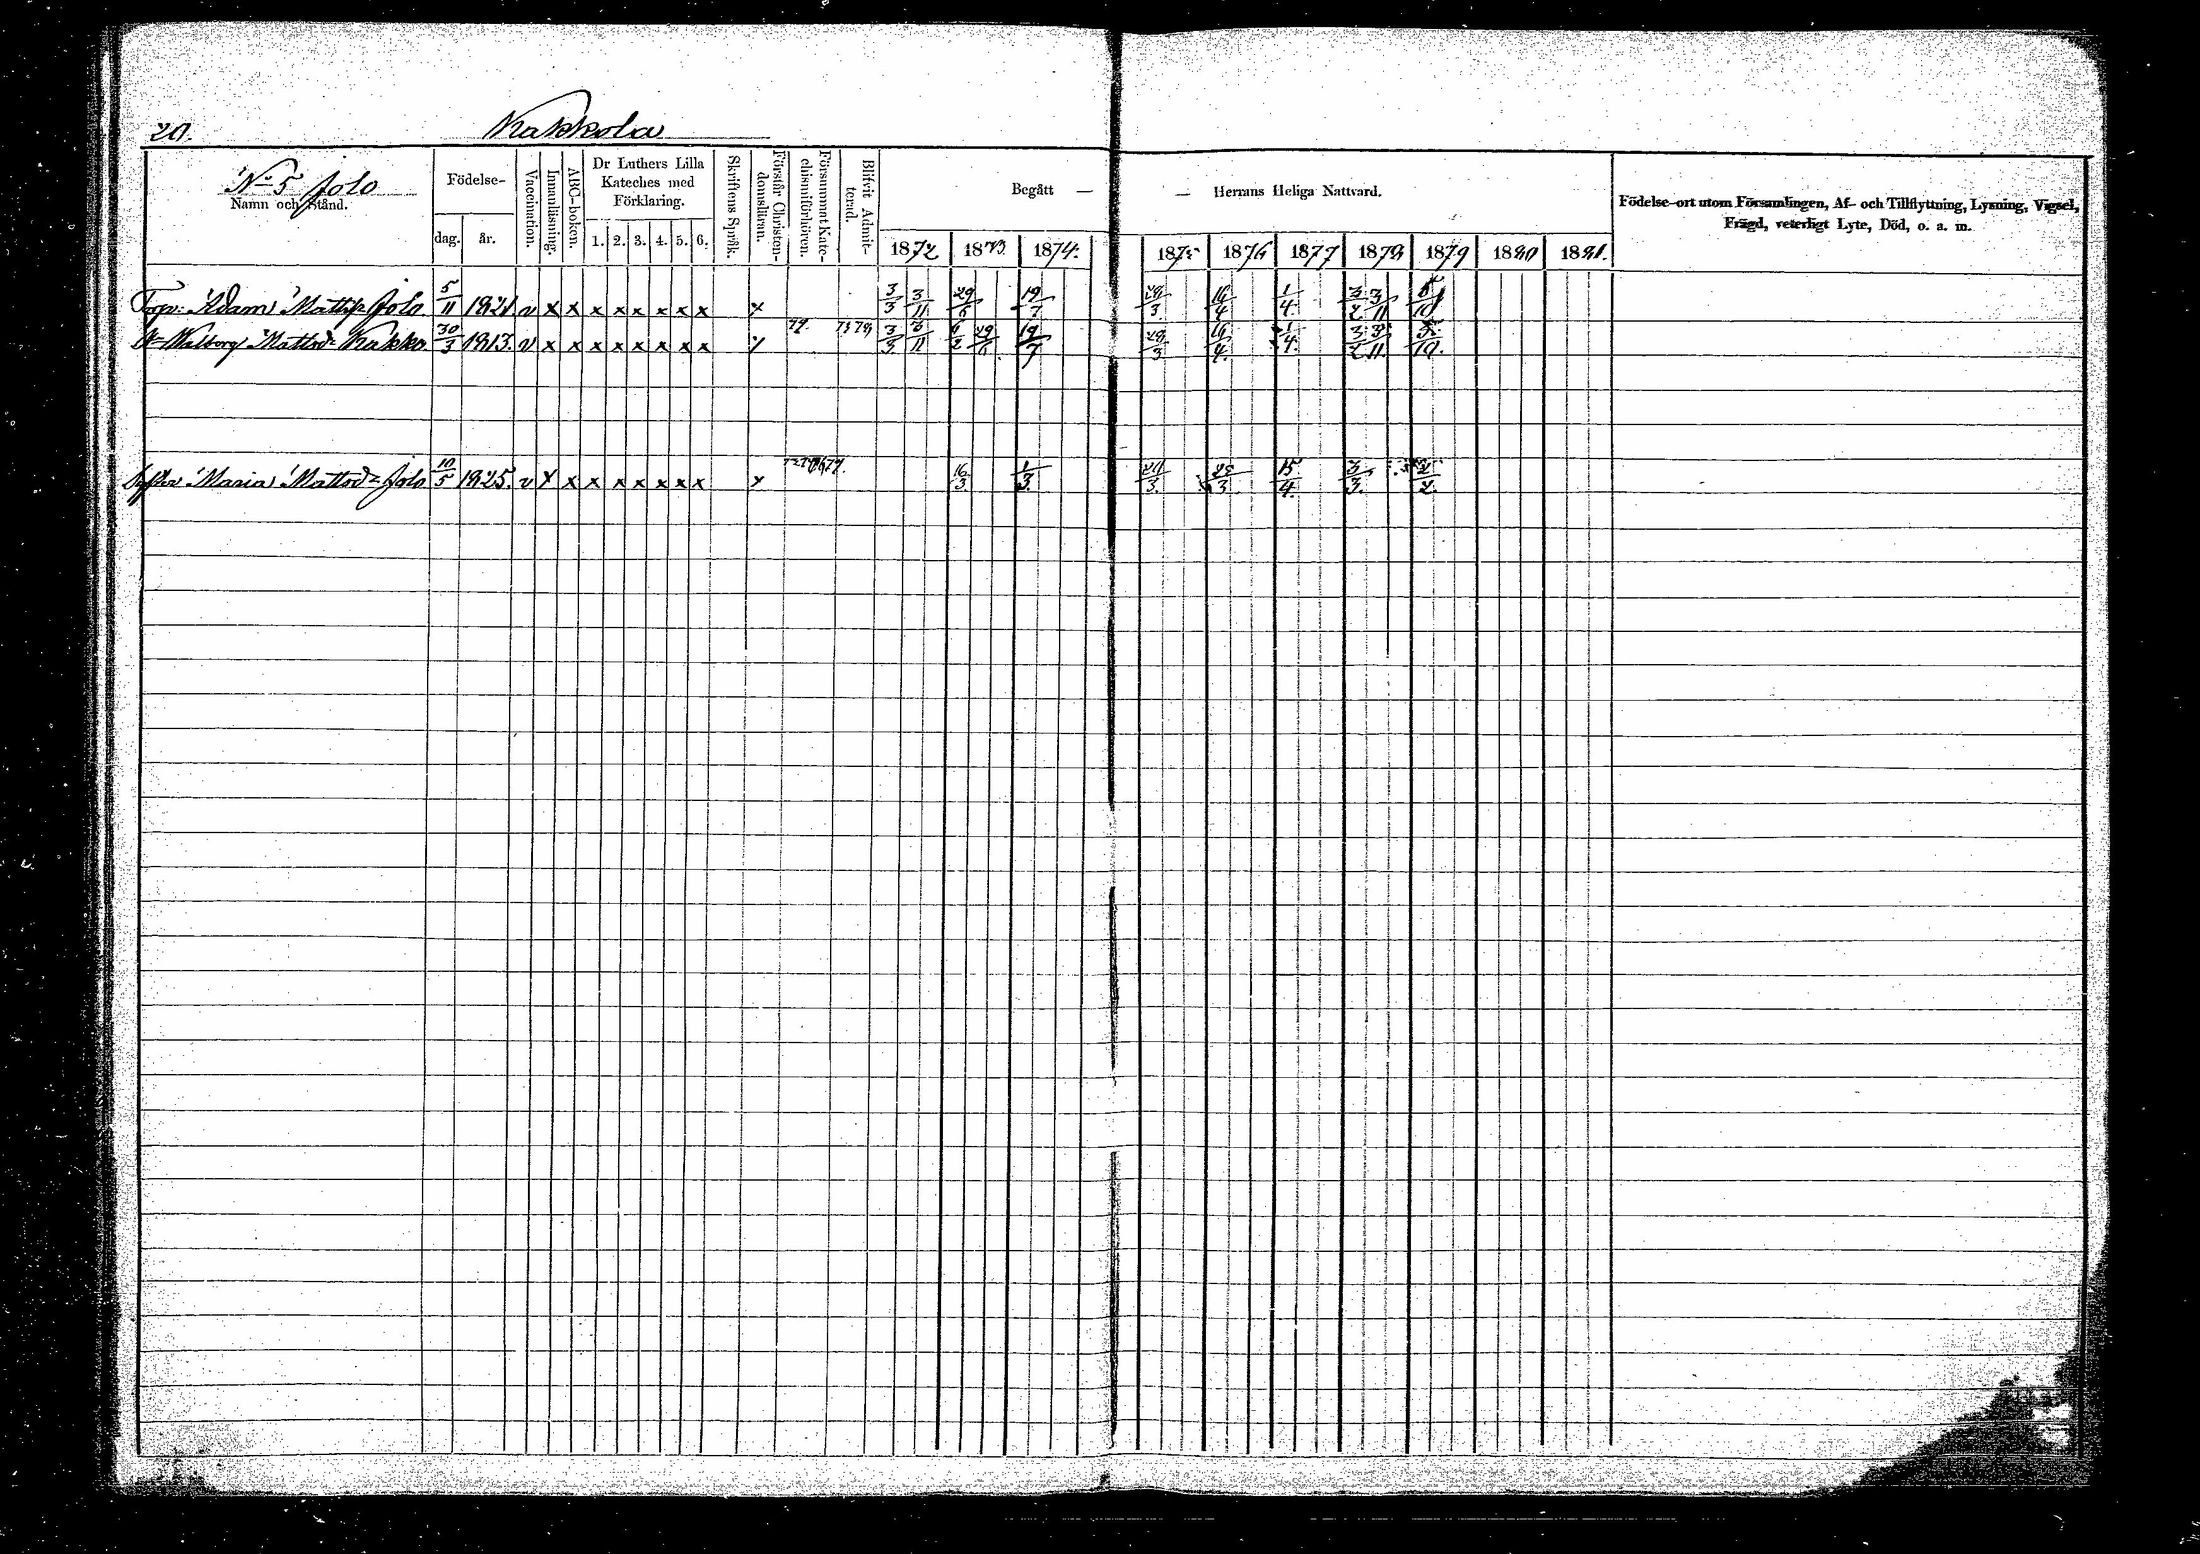 20. Kakkola
No 5 Jolo
Namn och Stånd.
Födelse-
dag. år.
Vaccination.
Innanläsning.
ABC-boken.
Dr Luthers Lilla
Kateches med
Förklaring.
1. 2. 3. 4. 5. 6.
Skriftens Språk.
Förstår Christen-
domsläran.
Försummat Kate-
chismiförhören.
Blifvit Admit-
terad.
Begått —
— Herrans Heliga Nattvard.
1872 1873. 1874. 1875 1876 1877 1878 1879 1880 1881.
Födelse-ort utom Församlingen, Af- och Tillflyttning, Lysning, Vigsel,
Frägd, veterligt Lyte, Död, o. a. m.
Adam Matts. Jolo 5/11 1821. v x x x x x x x x x 3/3 3/11 29/6 19/7 28/3 16/4 1/4 3/2 3/11 5/10
Walborg Mattsd. Kakko 30/3 1813. v x x x x x x x x x 3/3 3/11 6/2 29/6 19/7 28/3. 16/4. 1/4. 3/2 3/11 5/10.
Maria Mattsd. Jolo 10/5 1825. v x x x x x x x x x 16/3. 1/3. 15/4. 3/3. 2/2.